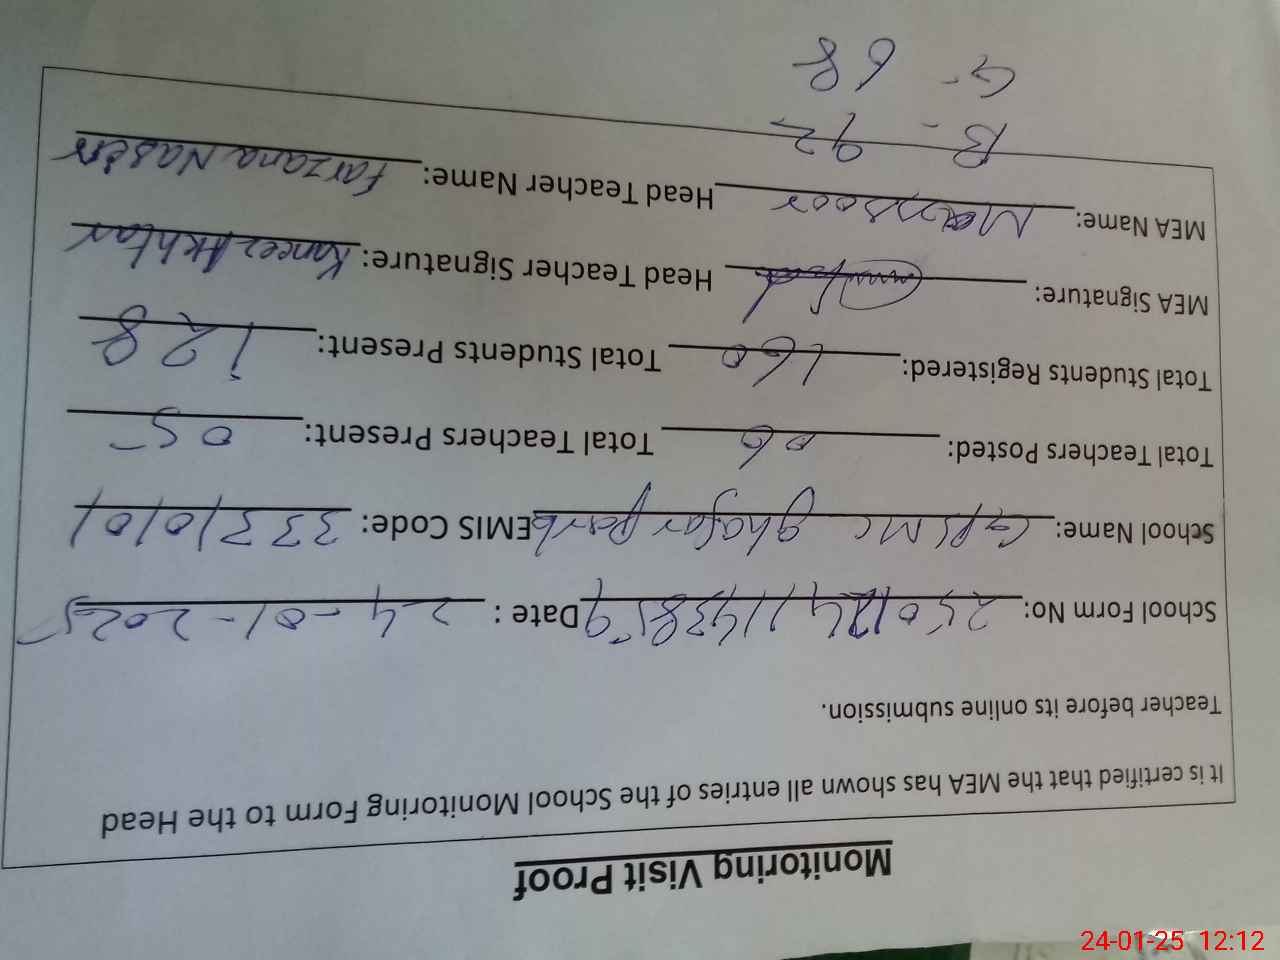 Monitoring Visit Proof
It is certified that the MEA has shown all entries of the School Monitoring Form to the Head
Teacher before its online submission.
School Form No: Date : 24-01-2025
School Name: EMIS Code: 33310101
Total Teachers Posted: 06 Total Teachers Present: 05
Total Students Registered: 160 Total Students Present: 128
MEA Signature: Head Teacher Signature: Kaneez Akhtar
MEA Name: Head Teacher Name: Farzana
B - 92
G - 68
24-01-25 12:12